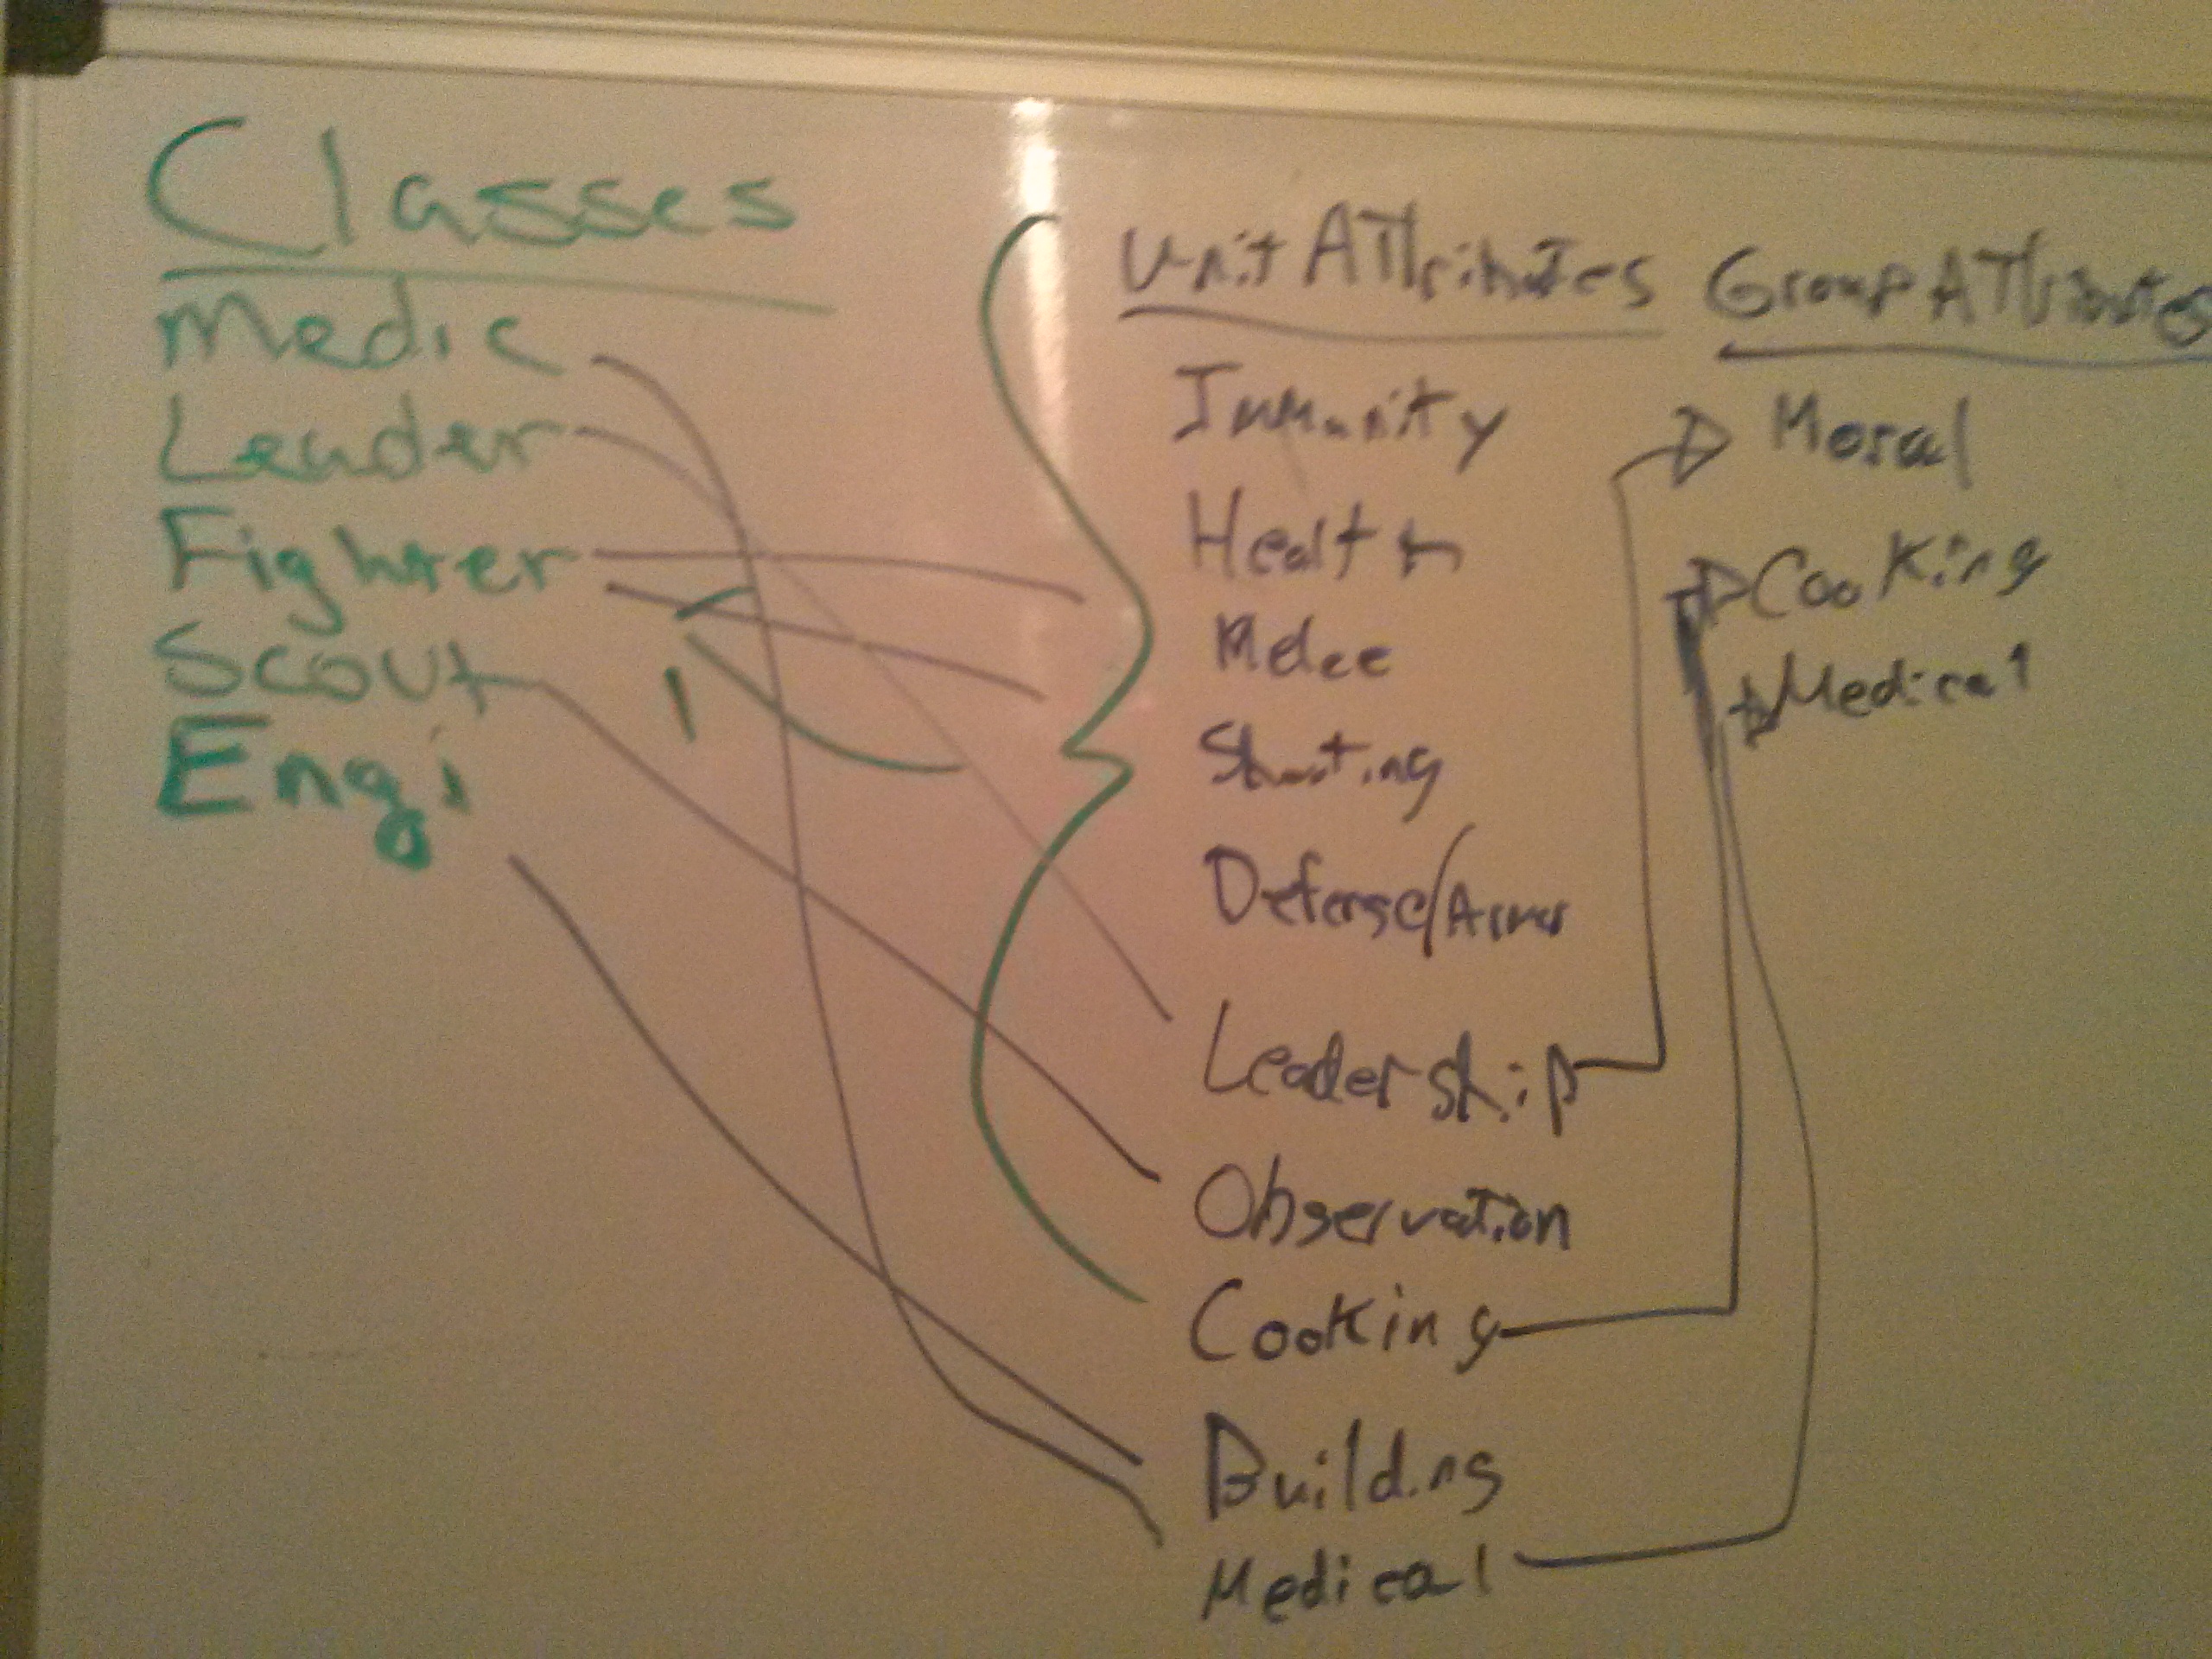 Classes
Medic
Leader
Fighter
Scout
Engi
Unit Attributes
Immunity
Health
Melee
Shooting
Defense/Armor
Leadership
Observation
Cooking
Building
Medical
Group Attributes
Moral
Cooking
Medical